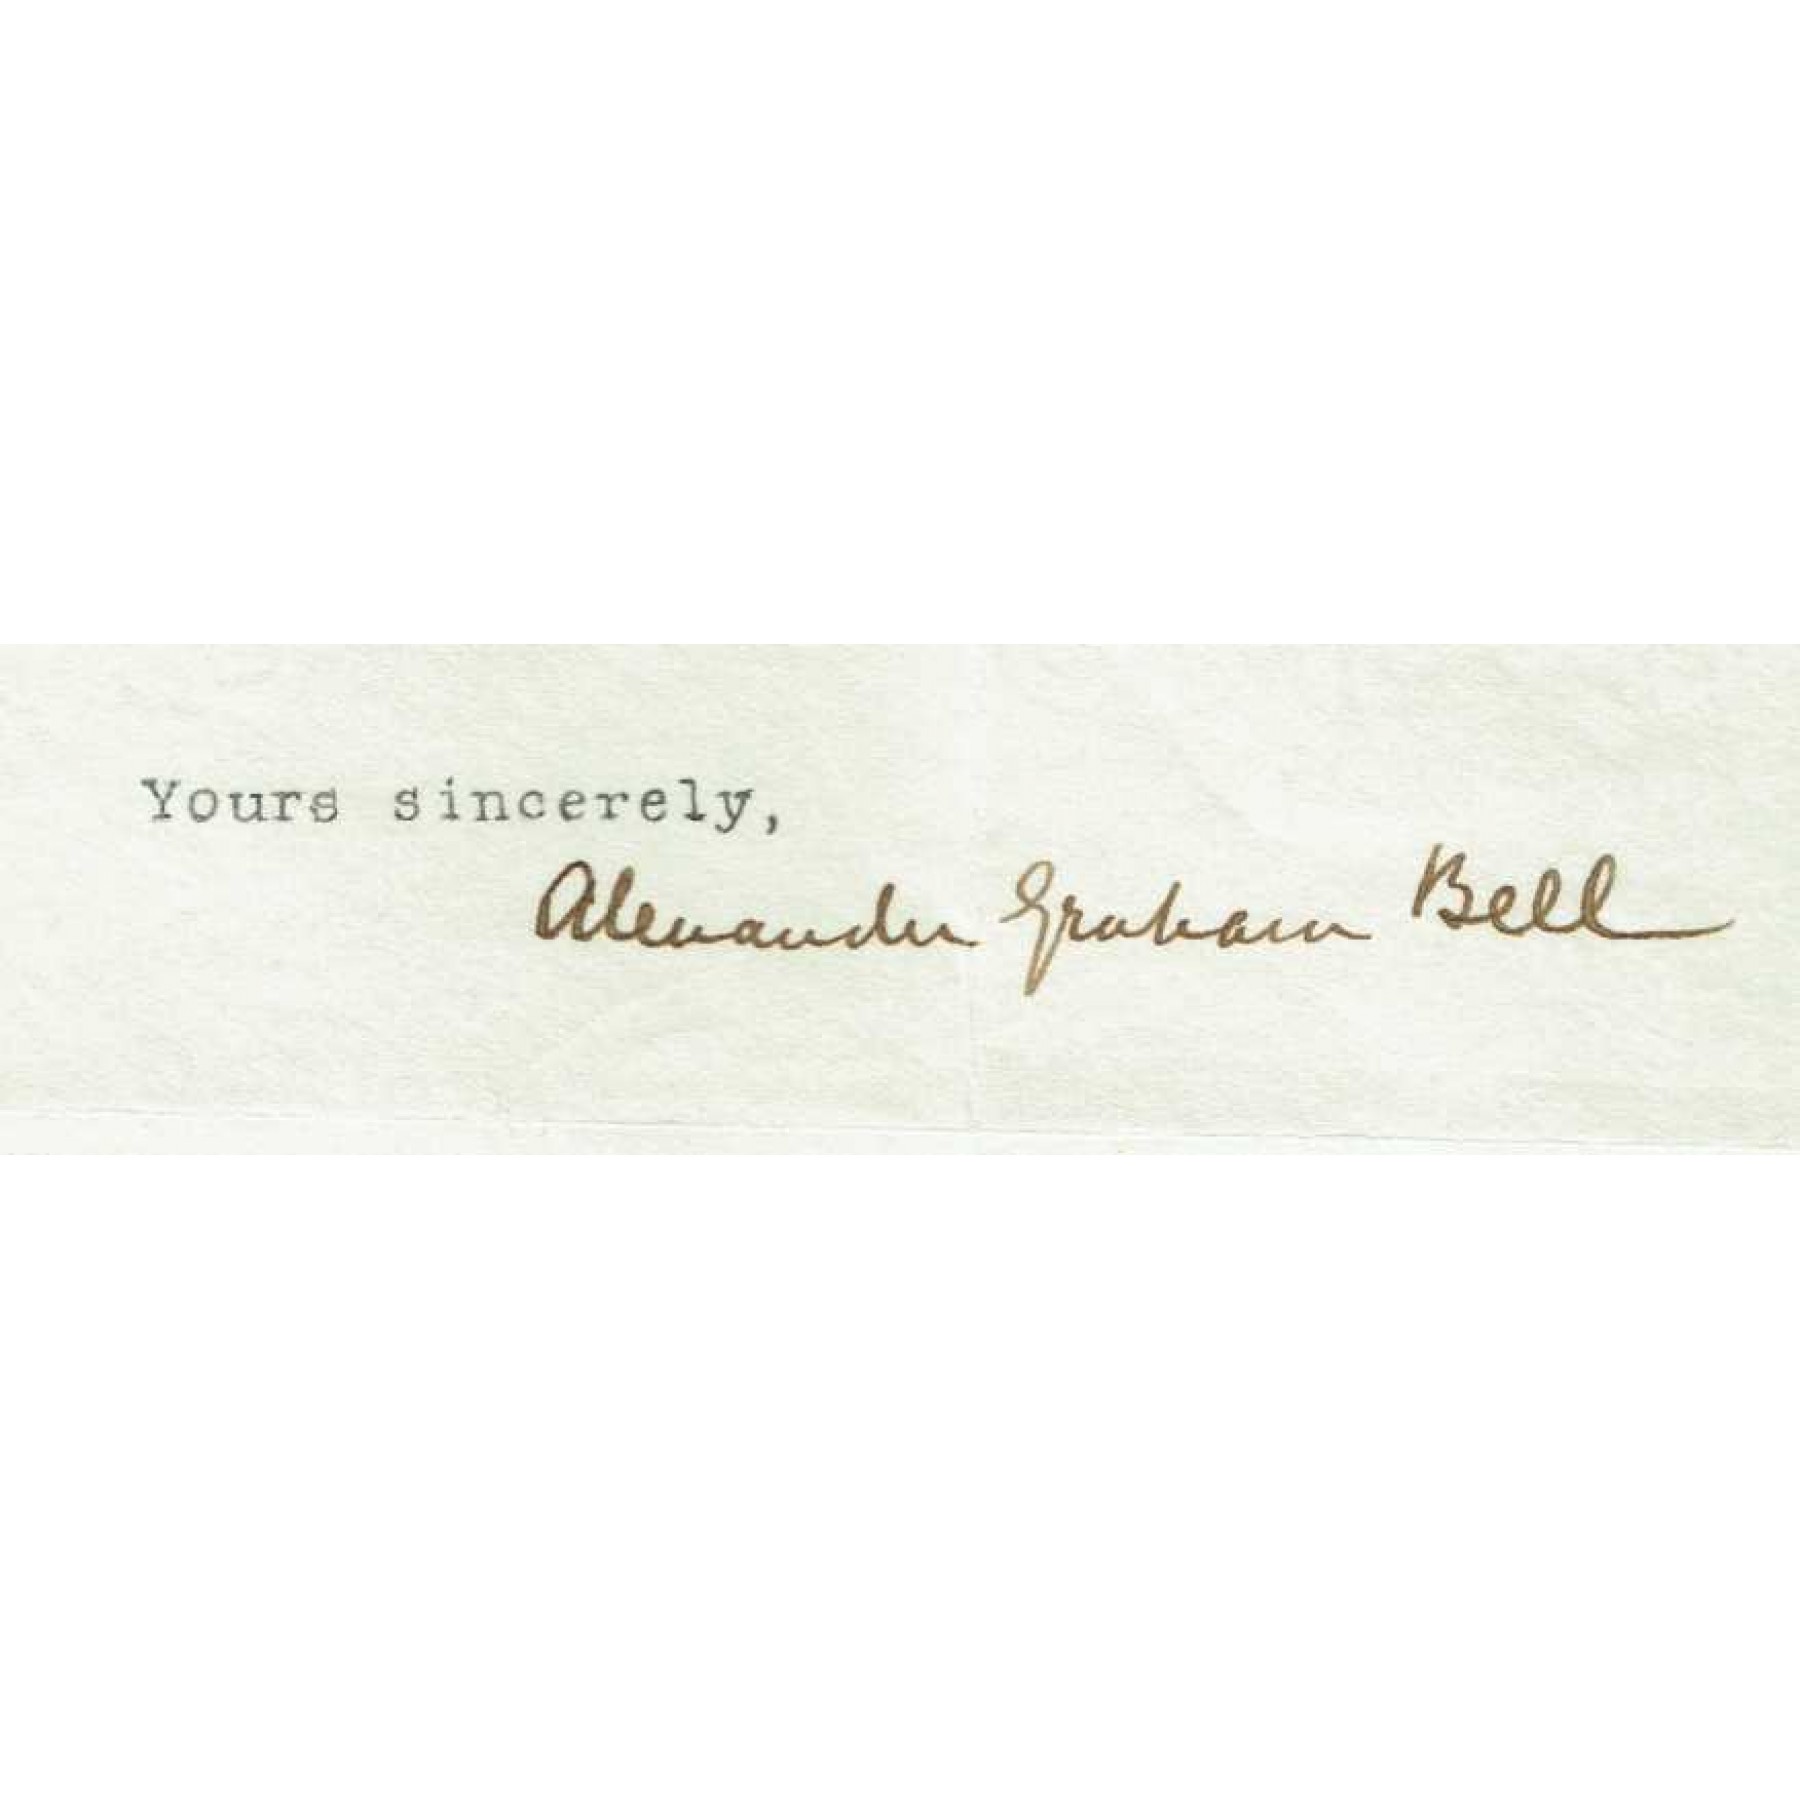 Yours sincerely,
Alexander Graham Bell